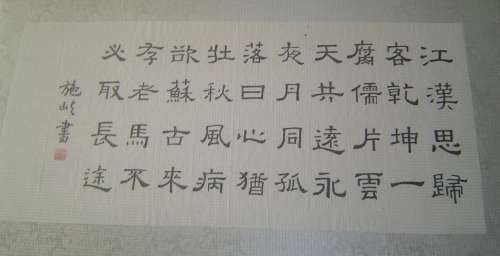 江漢思歸
客乾坤一
腐儒片雲
天共遠永
夜月同孤
落日心猶
壯秋風病
欲蘇古來
存老馬不
必取長途
施書